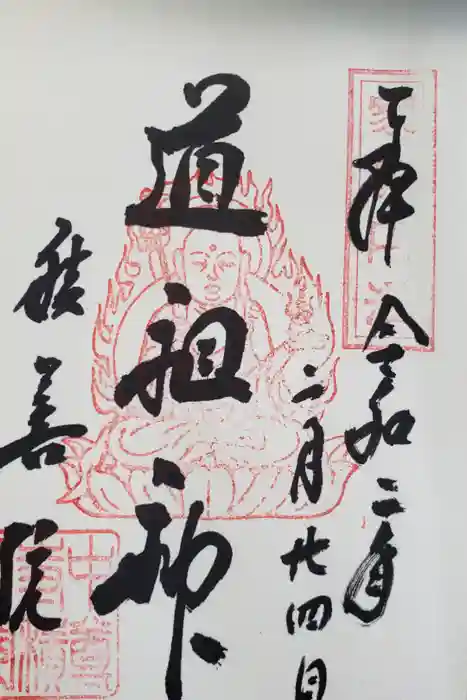 上拝 令和二年
二月廿四日
道祖神
積善院